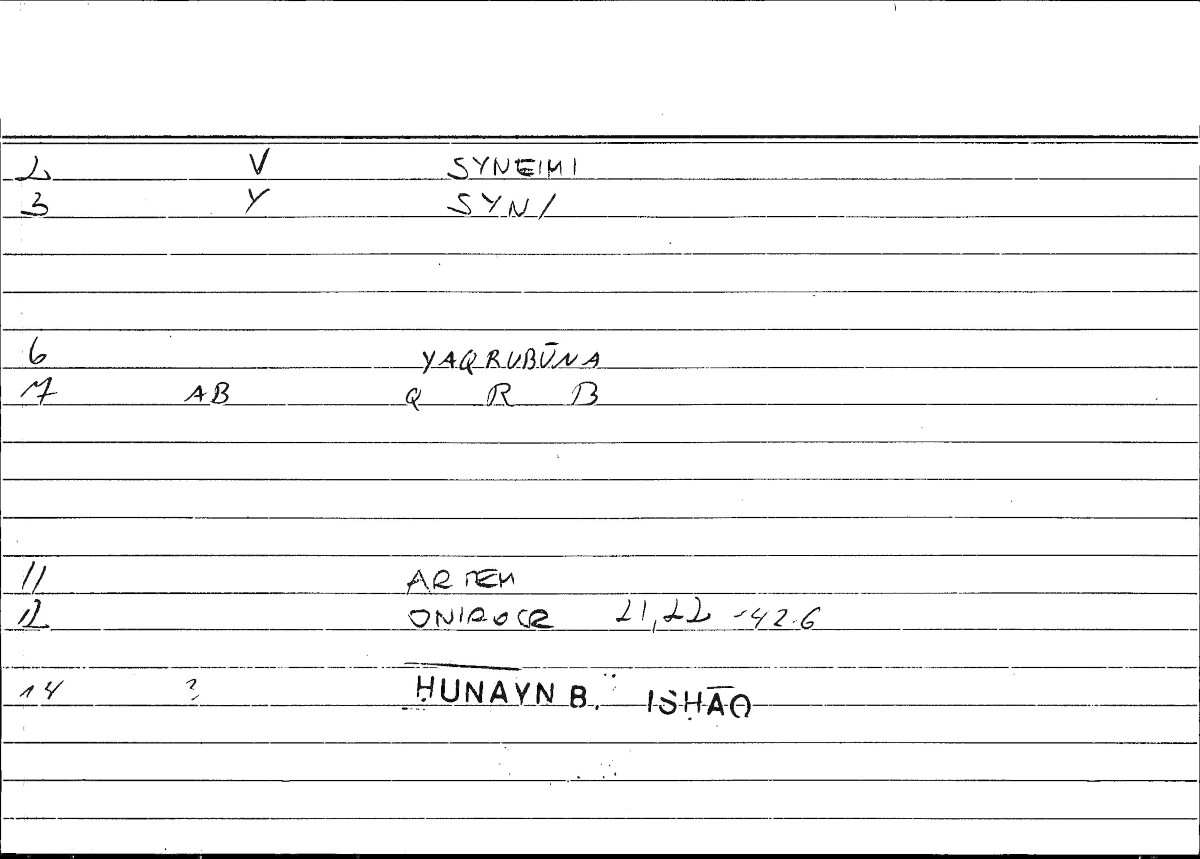 2 V SYNEIMI
3 Y SYN/
6 YAQRUBŪNA
7 AB Q R B
11 ARTEM
12 ONIROCR 21,22 -42.6
14 ? ḤUNAYN B. ISḤĀQ